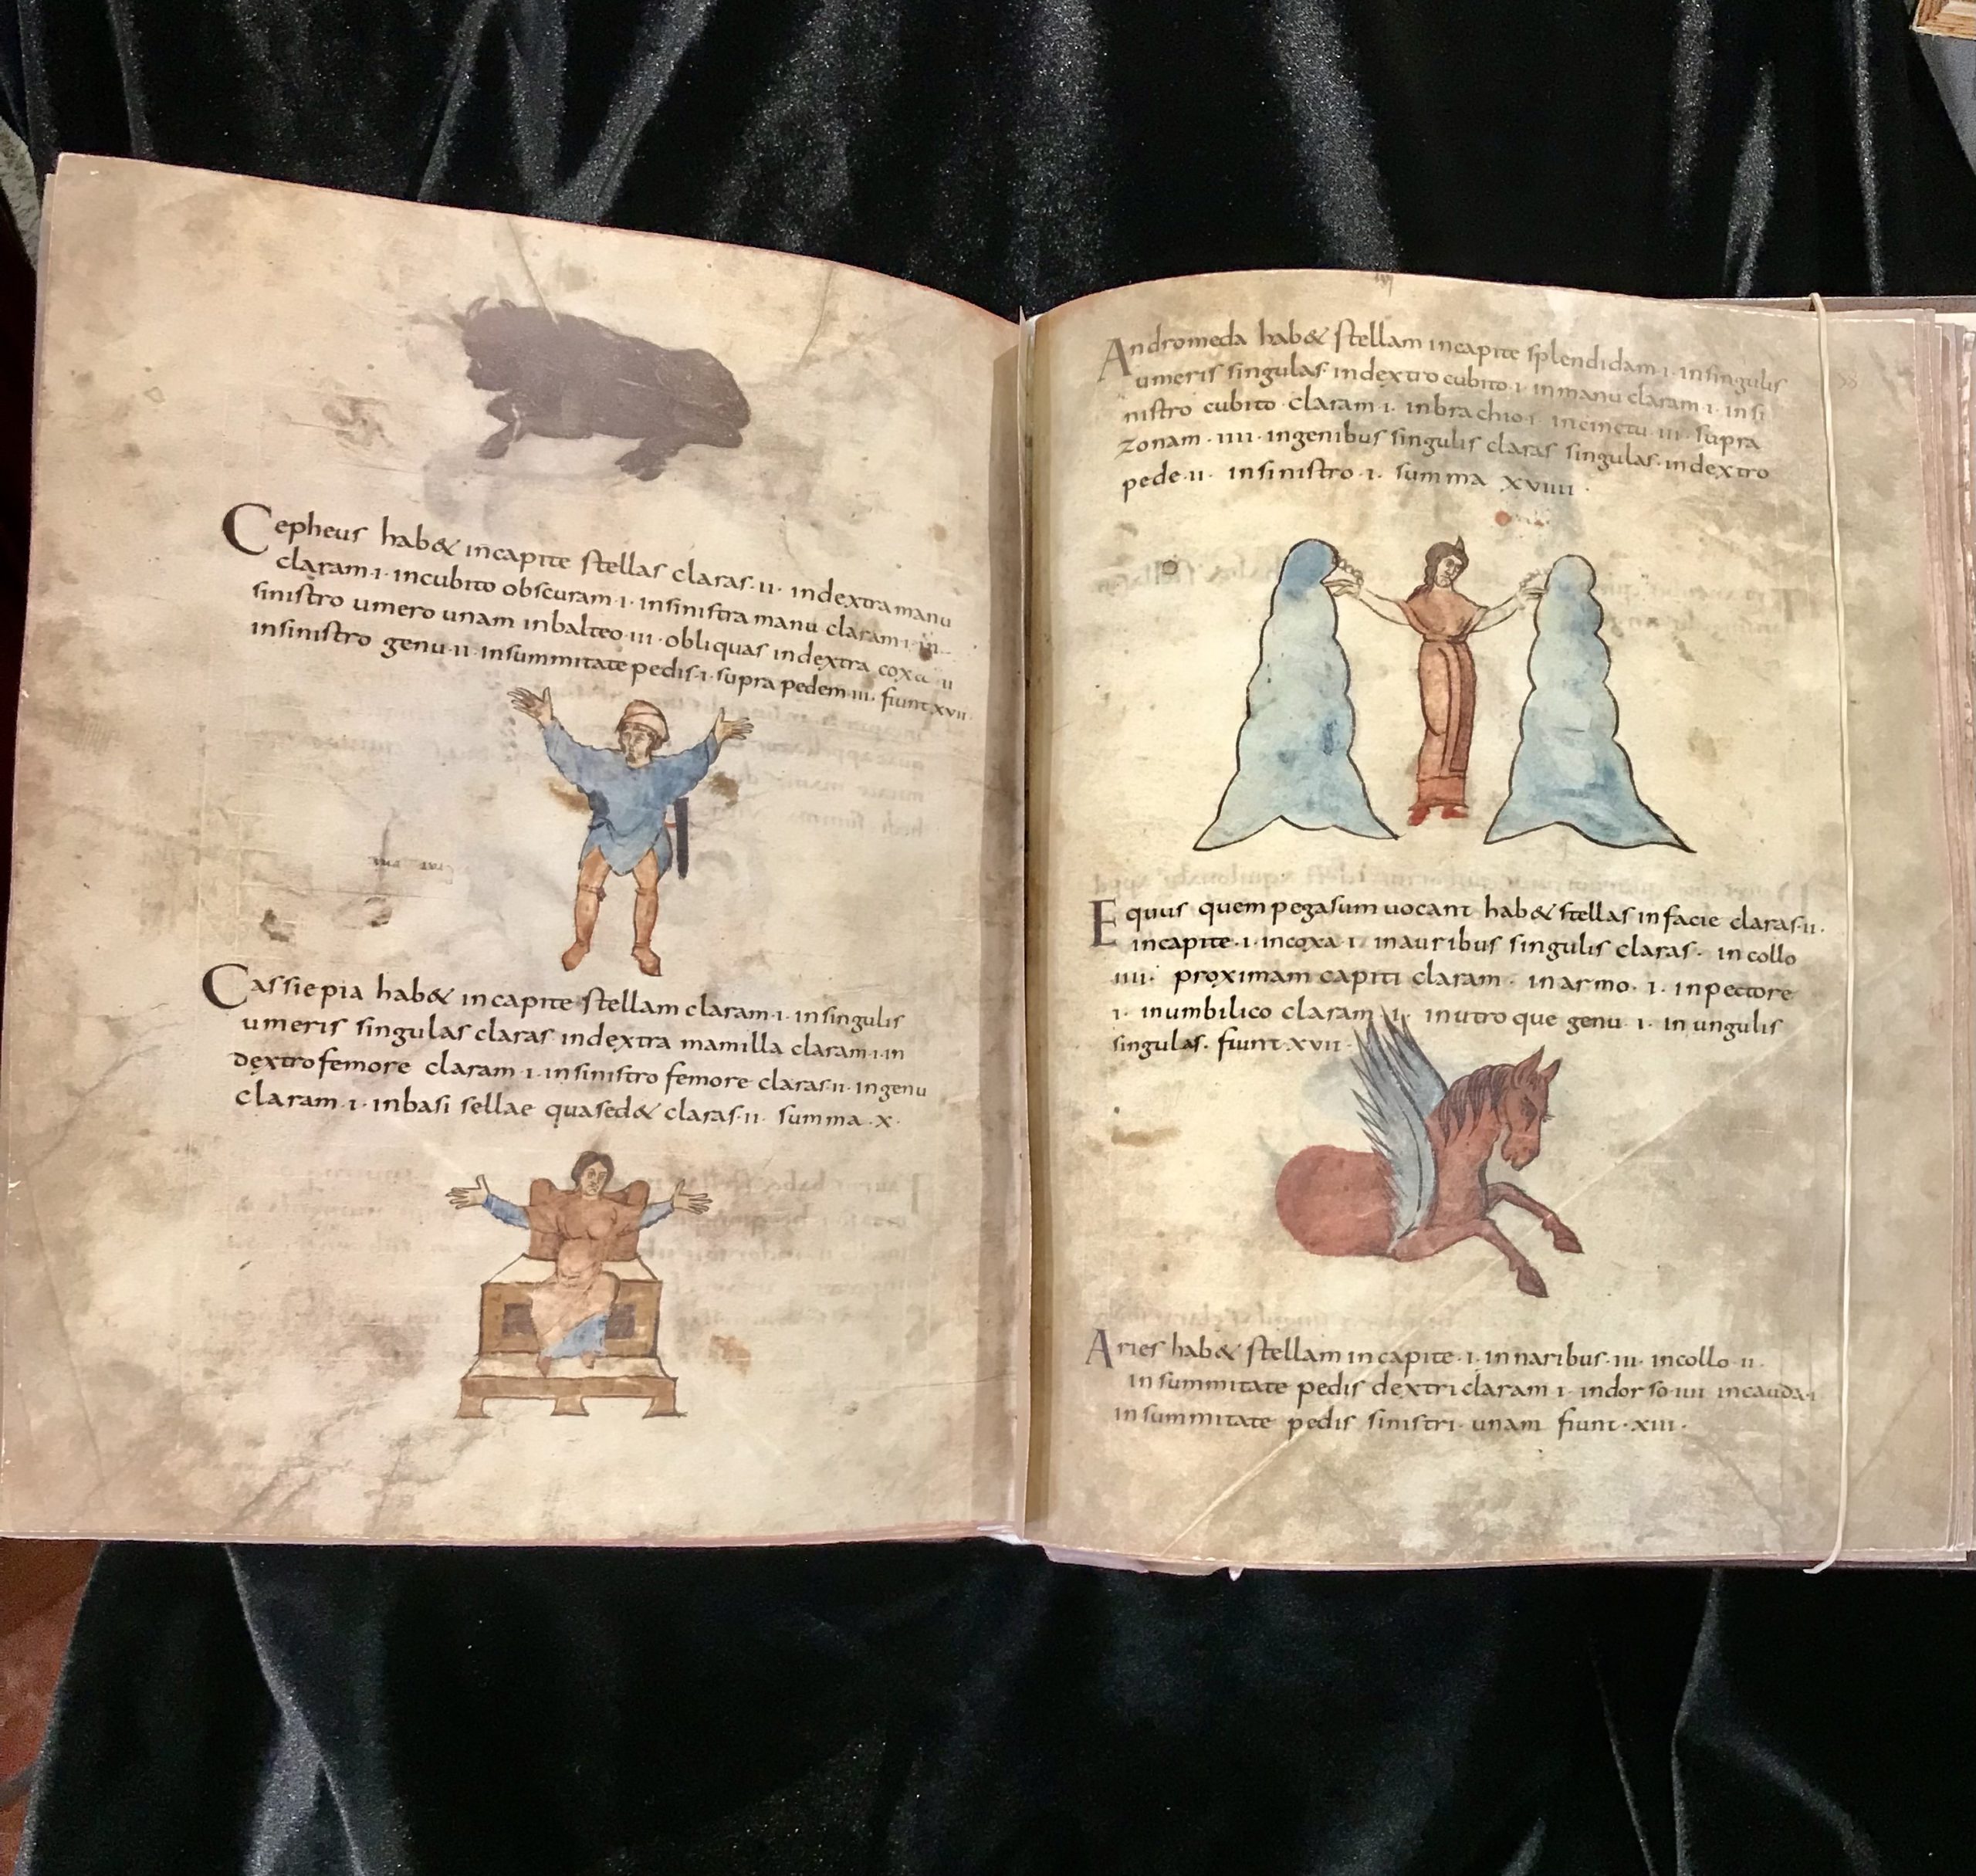 Cepheus hab& incapite stellas claras·ii· indextra manu
claram·i· incubito obscuram·i· insinistra manu claram·i· in
sinistro umero unam inbalteo·iii· obliquas indextra coxa ii
insinistro genu·ii· insummitate pedis·i· supra pedem·iii· fiunt xvii
Cassiepia hab& incapite stellam claram·i· insingulis
umeris singulas claras indextra mamilla claram·i· in
dextro femore claram·i· insinistro femore claras·ii· ingenu
claram·i· inbasi sellae quased& claras·ii· summa·x·
Andromeda hab& stellam incapite splendidam·i· insingulis
umeris singulas indextro cubito·i· inmanu claram·i· insi
nistro cubito claram·i· inbrachio·i· incinctu·iii· supra
zonam·iiii· ingenibus singulis claras singulas· indextro
pede·ii· insinistro·i· summa xviiii·
Equus quem pegasum uocant hab& stellas infacie claras·ii·
incapite·i· incoxa·i· inauribus singulis claras· incollo
iiii· proximam capiti claram· inarmo·i· inpectore
i· inumbilico claram·i· inutroque genu·i· inungulis
singulas· fiunt·xvii·
Aries hab& stellam incapite·i· innaribus·iii· incollo·ii·
insummitate pedis dextri claram·i· indorso·iiii· incauda·i·
insummitate pedis sinistri unam fiunt·xiii·